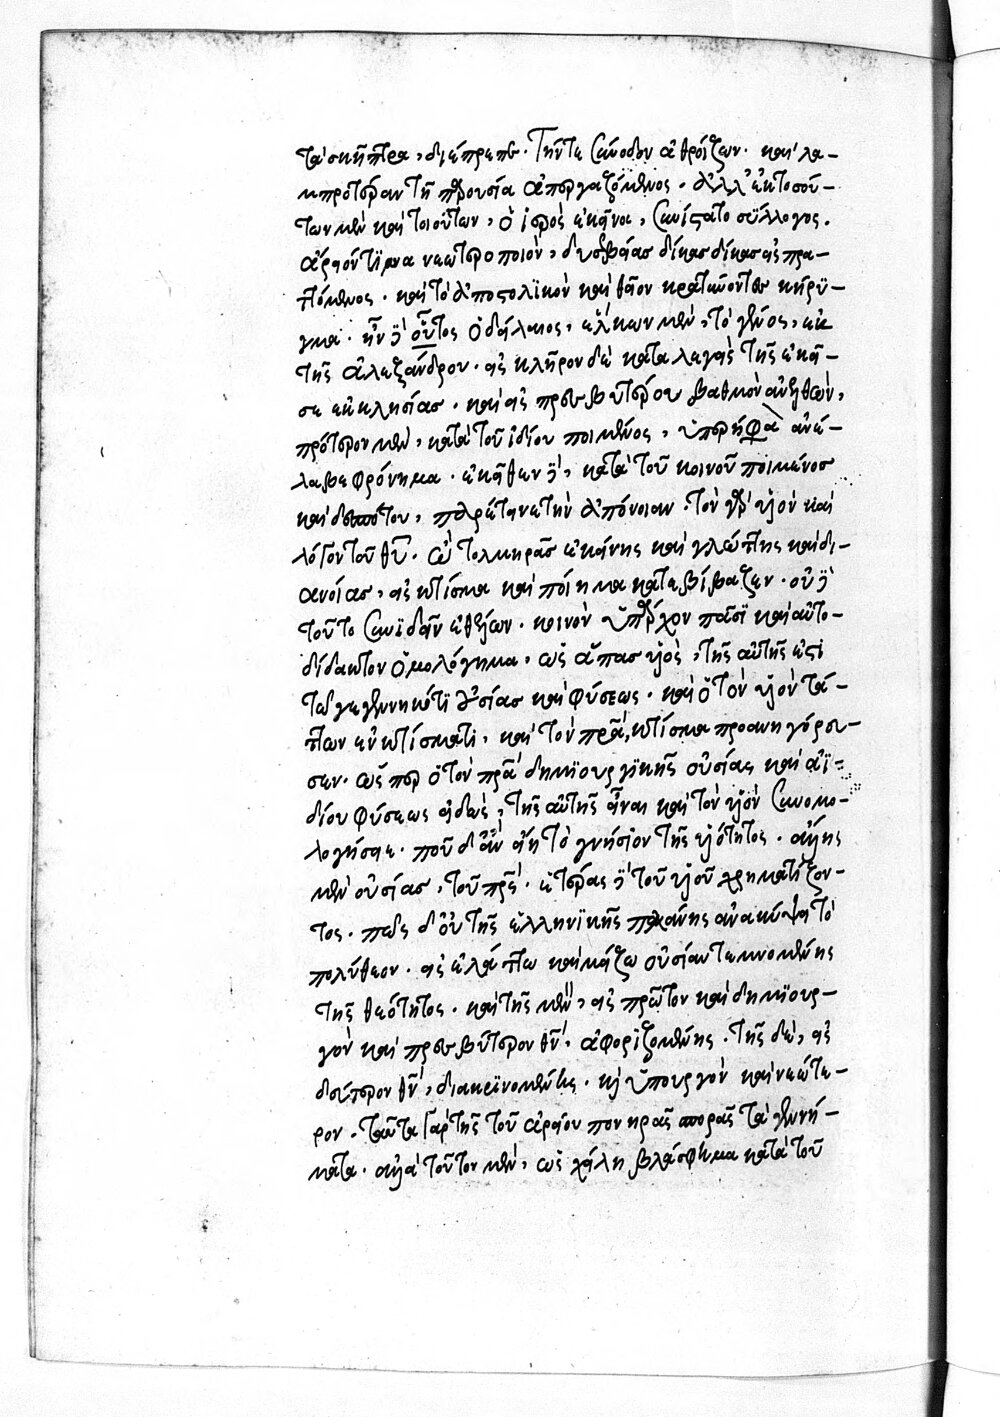 τὰ σκῆπτρα, διέπρεπε. Τήν τε σύνοδον ἀθροίζων. καὶ λα-
μπροτέραν τῇ παρουσία ἀπεργαζόμενος. ἀλλ' ἐκ τοσού-
των μὲν καὶ τοιούτων, ὁ ἱερὸς ἐκεῖνος, συνίστατο σύλλογος.
ἄρειόν τινα νεωτεροποιὸν, δυσσεβείας δίκας εἰσπρα-
ττόμενος. καὶ τὸ ἀποστολϊκὸν καὶ θεῖον κρατύνοντες κήρυ-
γμα. ἦν δὲ οὗτος ὁ δείλαιος, ἕλκων μὲν, τὸ γένος, ἐκ
τῆς ἀλεξάνδρου. εἰς κλῆρον δὲ καταλεγεὶς τῆς ἐκεῖ-
σε ἐκκλησίας. καὶ εἰς πρεσβυτέρου βαθμὸν ἀνελθὼν,
πρότερον μὲν, κατὰ τοῦ ἰδίου ποιμένος, ὑπερήφανα ἀνέ-
λαβε φρόνημα. ἐκεῖθεν δὲ, κατὰ τοῦ κοινοῦ ποιμένος
καὶ δεσπότου, παρέτεινε τὴν ἀπόνοιαν. τὸν γὰρ υἱὸν καὶ
λόγον τοῦ θυ. ὢ τολμηρᾶς ἐκείνης καὶ γλώττης καὶ δι-
ανοίας, εἰς κτίσμα καὶ ποίημα κατεβίβαζεν. οὐδὲ
τοῦτο συνϊδεῖν ἐθέλων. κοινὸν ὑπάρχον πᾶσϊ καὶ αὐτο-
δίδακτον ὁμολόγημα, ὡς ἅπας υἱὸς, τῆς αὐτῆς ἐστὶ
τῷ γεγεννηκότϊ οὐσίας καὶ φύσεως. καὶ ὁ τὸν υἱὸν τά-
ττων ἐν κτίσματι, καὶ τὸν πρα, κτίσμα προανηγόρευ-
σεν. ὥσπερ ὁ τὸν πρα δημϊουργϊκῆς οὐσίας καὶ ἀϊ-
δίου φύσεως εἰδὼς, τῆς αὐτῆς εἶναι καὶ τὸν υἱὸν συνομο-
λογήσειε. ποῦ δ' ἂν εἴη τὸ γνήσϊον τῆς υἱότητος. ἄλλης
μὲν οὐσίας, τοῦ πρς. ἑτέρας δὲ τοῦ υἱοῦ χρηματίζον-
τος. πῶς δ' οὐ τῆς ἑλληνϊκῆς πλάνης ἀνακύψει τὸ
πολύθεον. εἰς ἐλάττω καὶ μείζω οὐσίαν τεμνομένης
τῆς θεότητος. καὶ τῆς μὲν, εἰς πρῶτον καὶ δημϊουρ-
γὸν καὶ πρεσβύτερον θν, ἀφορϊζομένης. τῆς δὲ, εἰς
δεύτερον θν, διακρϊνομένης. καὶ ὑπουργὸν καὶ νεώτε-
ρον. ταῦτα γὰρ τῆς τοῦ ἀρείου πονηρᾶς σπορᾶς τὰ γεννή-
ματα. ἀλλὰ τοῦτον μὲν, ὡς χείλη βλάσφημα κατὰ τοῦ